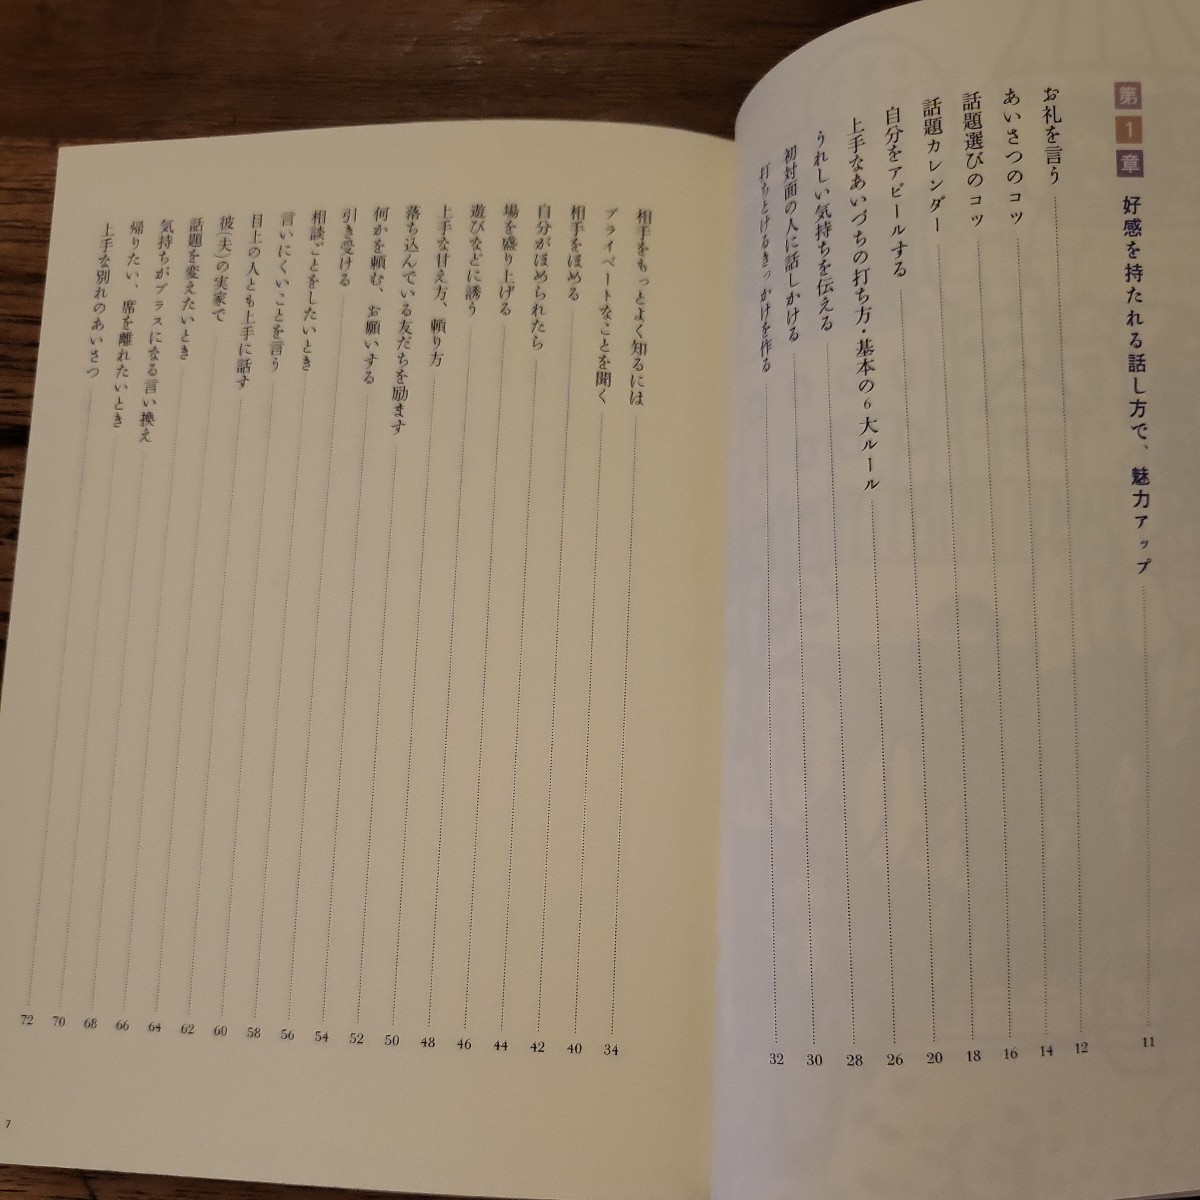 第1章 好感を持たれる話し方で、魅力アップ 11
お礼を言う 12
あいさつのコツ 14
話題選びのコツ 16
話題カレンダー 18
自分をアピールする 20
上手なあいづちの打ち方・基本の6大ルール 26
うれしい気持ちを伝える 28
初対面の人に話しかける 30
打ちとけるきっかけを作る 32
相手をもっとよく知るには 34
プライベートなことを聞く 40
相手をほめる 42
自分がほめられたら 44
場を盛り上げる 46
遊びなどに誘う 48
上手な甘え方、頼り方 50
落ち込んでいる友だちを励ます 52
何かを頼む、お願いする 54
引き受ける 56
相談ごとをしたいとき 58
言いにくいことを言う 60
目上の人とも上手に話す 62
彼(夫)の実家で 64
話題を変えたいとき 66
気持ちがプラスになる言い換え 68
帰りたい、席を離れたいとき 70
上手な別れのあいさつ 72
7